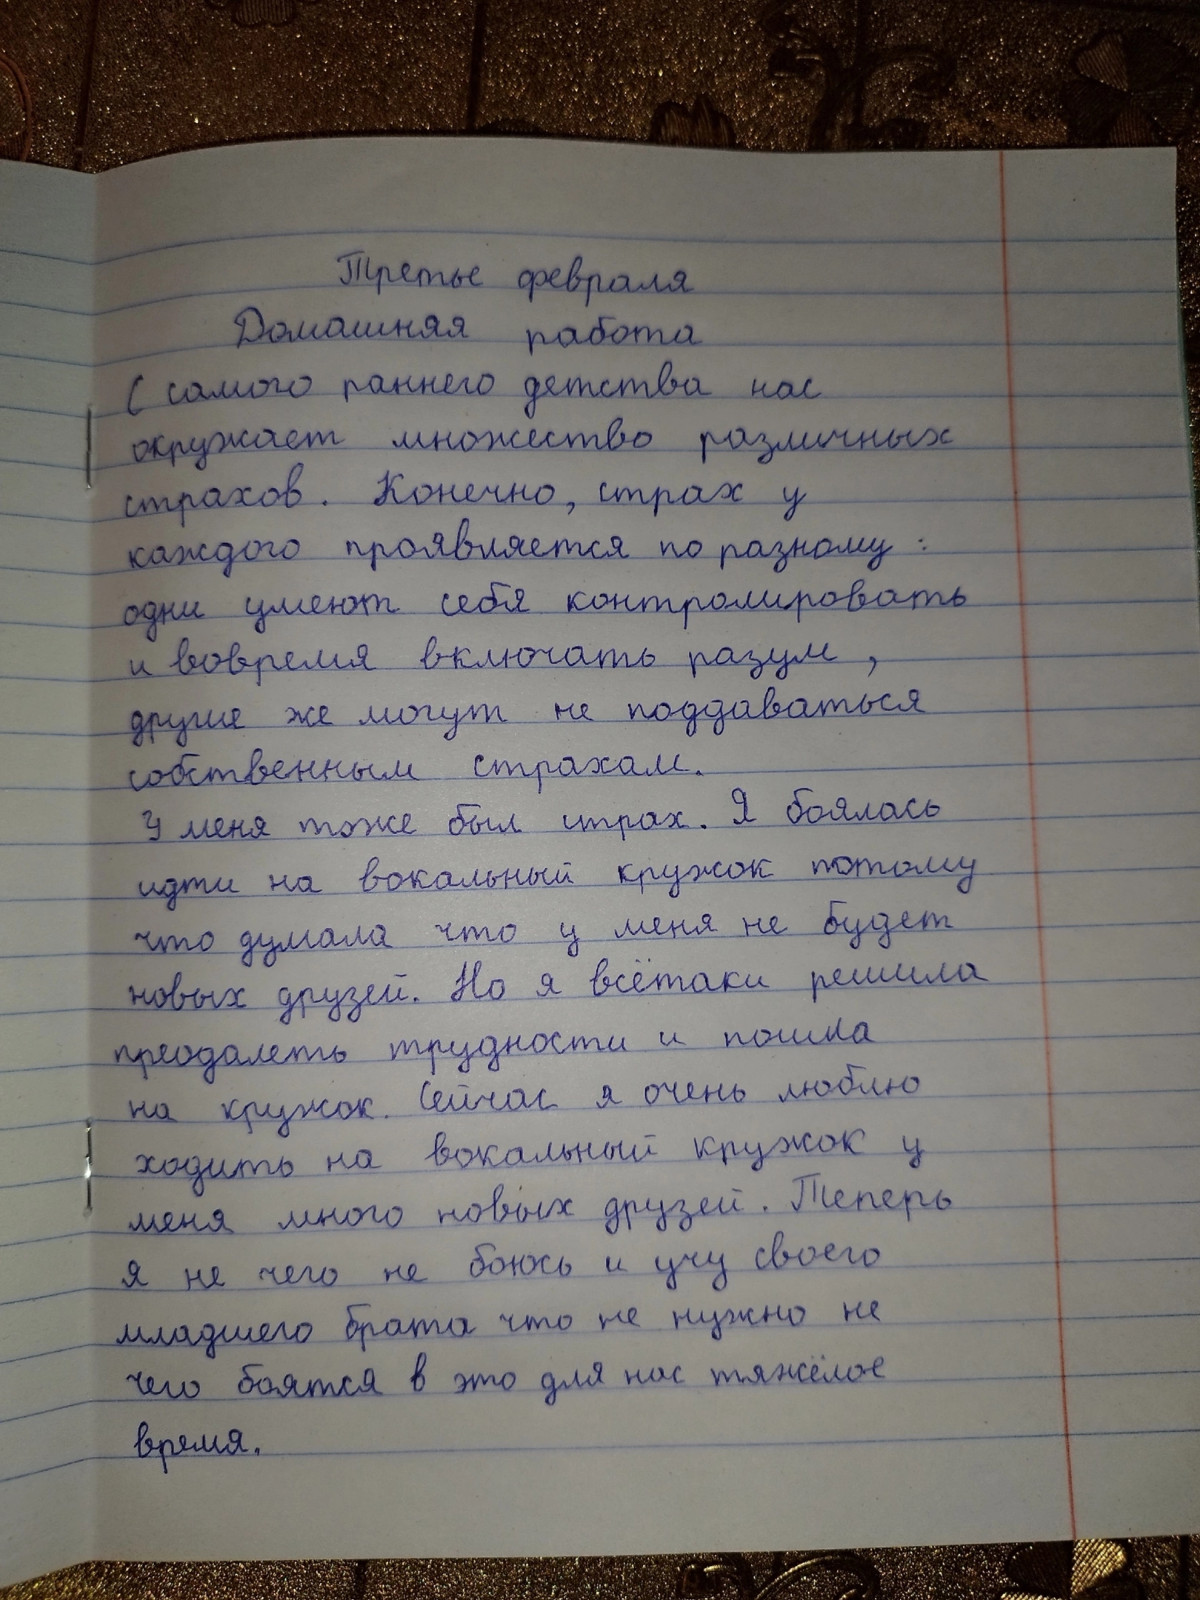 Третье февраля
Домашняя работа
С самого раннего детства нас
окружает множество различных
страхов. Конечно, страх у
каждого проявляется по разному:
одни умеют себя контролировать
и вовремя включать разум,
другие же могут не поддаваться
собственным страхам.
У меня тоже был страх. Я боялась
идти на вокальный кружок потому
что думала что у меня не будет
новых друзей. Но я всётаки решила
преодалеть трудности и пошла
на кружок. Сейчас я очень люблю
ходить на вокальный кружок у
меня много новых друзей. Теперь
я не чего не боюсь и учу своего
младшего брата что не нужно не
чего боятся в это для нас тяжёлое
время.